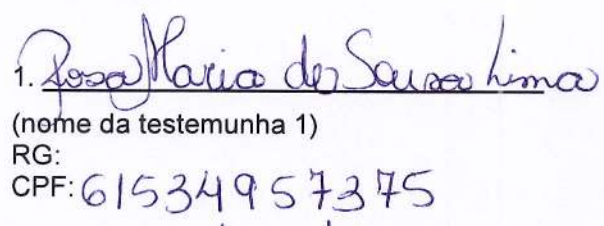 1. Rosa Maria de Sousa Lima
(nome da testemunha 1)
RG:
CPF: 61534957375